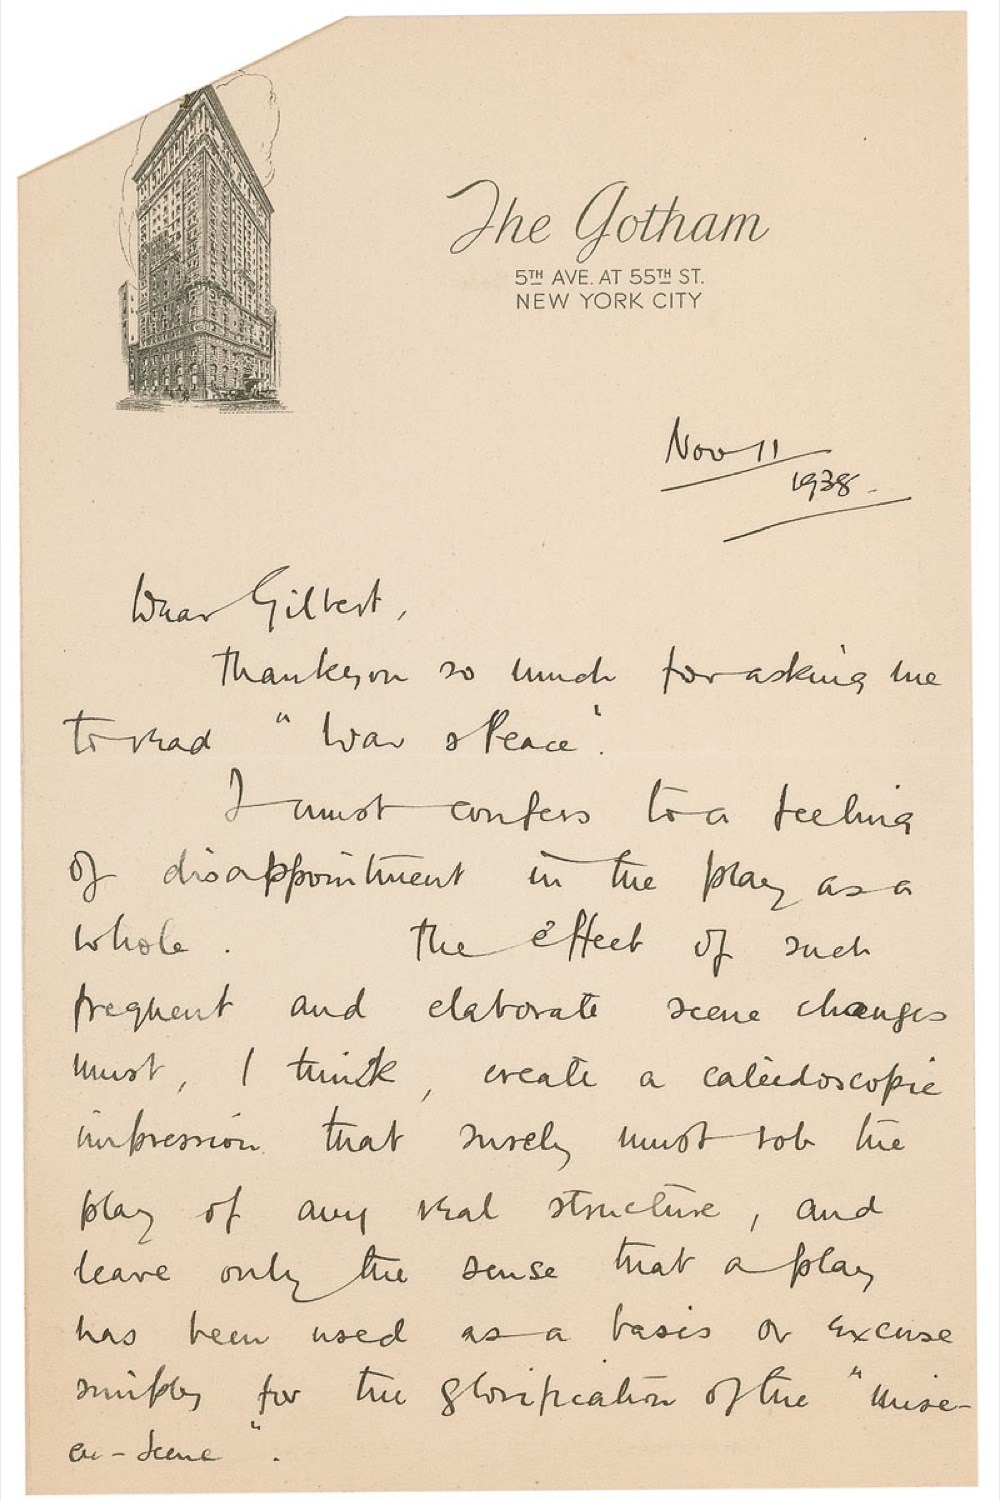 The Gotham
5TH AVE. AT 55TH ST.
NEW YORK CITY
Nov 11
1938.
Dear Gilbert,
Thank you so much for asking me
to read "War & Peace".
I must confess to a feeling
of disappointment in the play as a
whole. The effect of such
frequent and elaborate scene changes
must, I think, create a caleidoscopic
impression that surely must rob the
play of any real structure, and
leave only the sense that a play
has been used as a basis or excuse
simply for the glorification of the "mise-
en-scene".